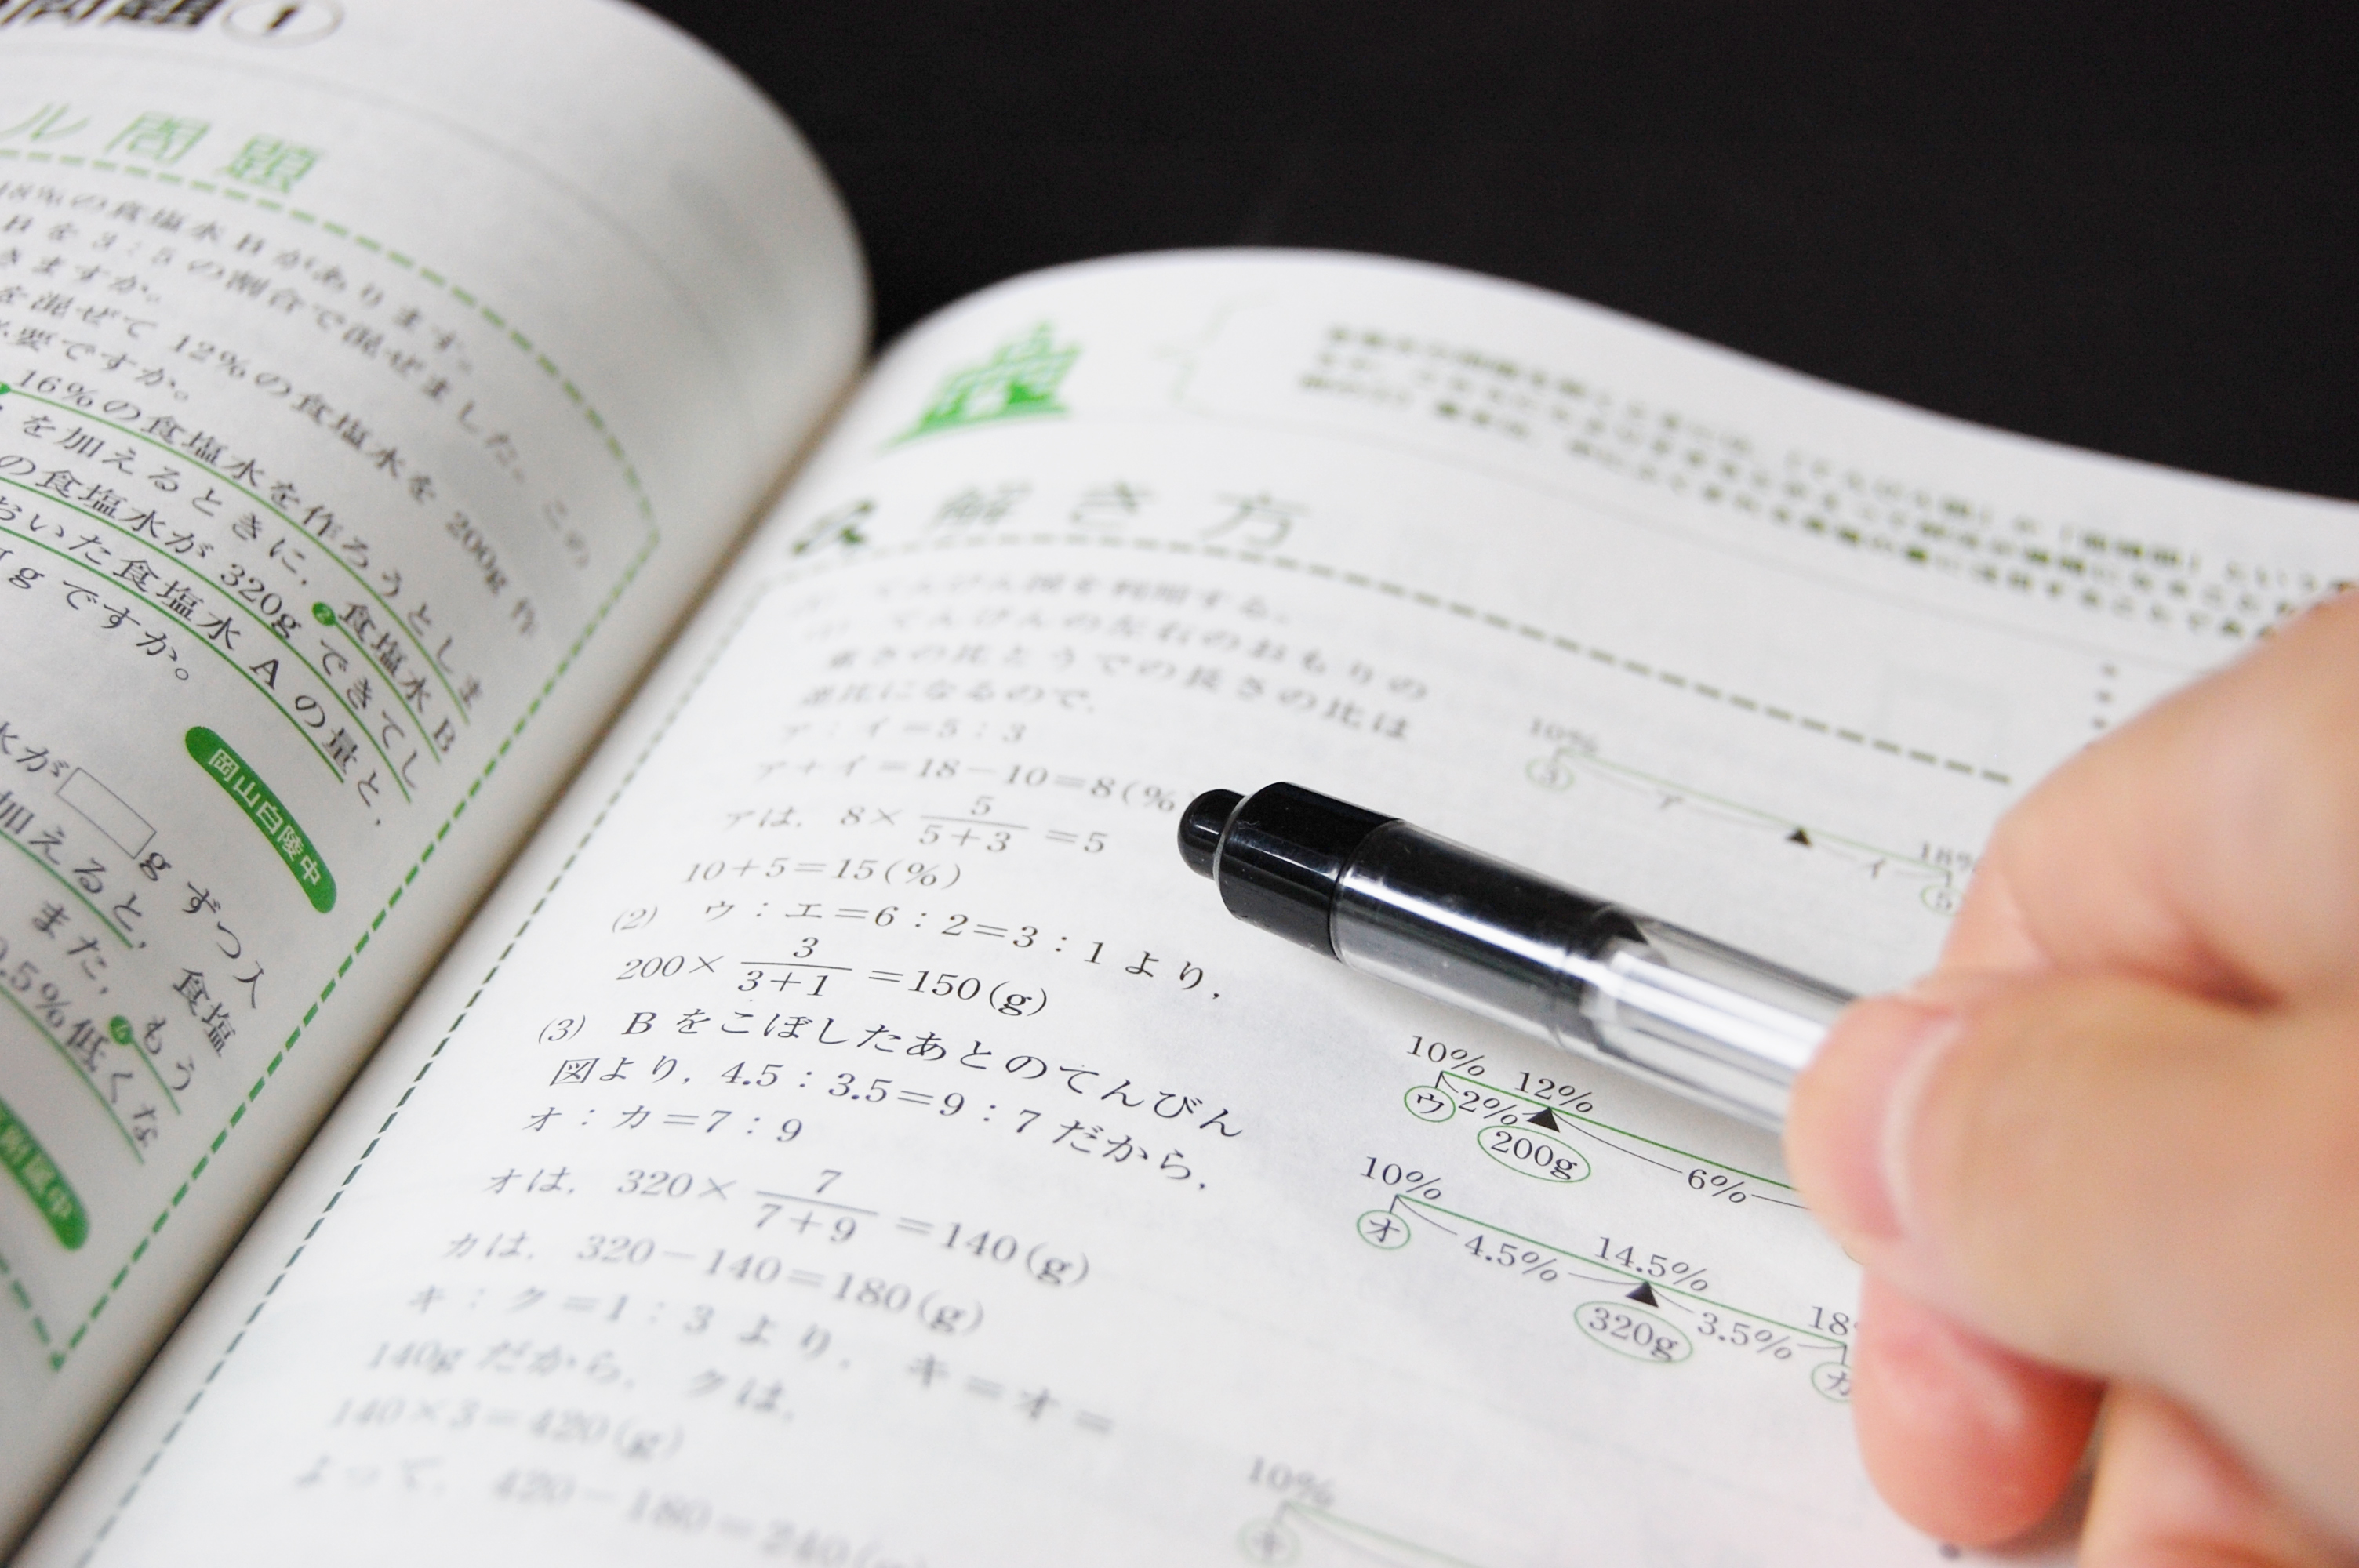 問題①
ル問題
18%の食塩水Bがあります。
Bを3:5の割合で混ぜました。この
きますか。
を混ぜて12%の食塩水を200g作
必要ですか。
16%の食塩水を作ろうとしま
を加えるときに,❷食塩水B
の食塩水が320gできてし
おいた食塩水Aの量と,
gですか。
岡山白陵中
水が□gずつ入
加えると,食塩
また,もう
.5%低くな
附属中
解き方
てんびん図を利用する。
てんびんの左右のおもりの
重さの比とうでの長さの比は
逆比になるので,
ア:イ=5:3
ア+イ=18-10=8(%
アは, 8×5/(5+3)=5
10+5=15(%)
(2) ウ:エ=6:2=3:1より,
200×3/(3+1)=150(g)
(3) Bをこぼしたあとのてんびん
図より, 4.5:3.5=9:7だから,
オ:カ=7:9
オは, 320×7/(7+9)=140(g)
カは, 320-140=180(g)
キ:ク=1:3より, キ=オ=
140gだから, クは,
140×3=420(g)
よって, 420-180=240(g)
10%
③ ア
イ 18%
⑤
10% 12%
ウ 2% 6%
200g
10% 14.5% 18
オ 4.5% 3.5% カ
320g
10%
キ